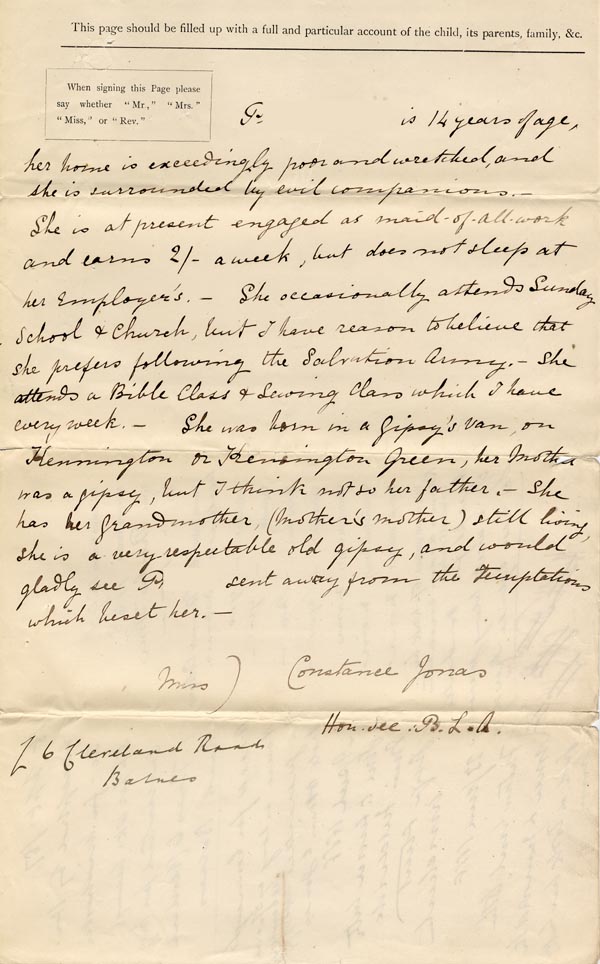 This page should be filled up with a full and particular account of the child, its parents, family, &c.
When signing this Page please
say whether "Mr," "Mrs."
"Miss," or "Rev."
is 14 years of age,
her home is exceedingly poor and wretched, and
she is surrounded by evil companions. –
She is at present engaged as maid-of-all-work
and earns 2/- a week, but does not sleep at
her Employer's. – She occasionally attends Sunday
School & Church, but I have reason to believe that
she prefers following the Salvation Army. – She
attends a Bible Class & Sewing Class which I have
every week. – She was born in a Gipsy's Van, on
Kennington or Kensington Green, her Mother
was a gipsy, but I think not so her father. – She
has her grandmother, (Mother's mother) still living,
she is a very respectable old gipsy, and would
gladly see sent away from the Temptations
which beset her. –
Miss) Constance Jonas
Hon. Sec: B.L.A.
6 Cleveland Road
Barnes